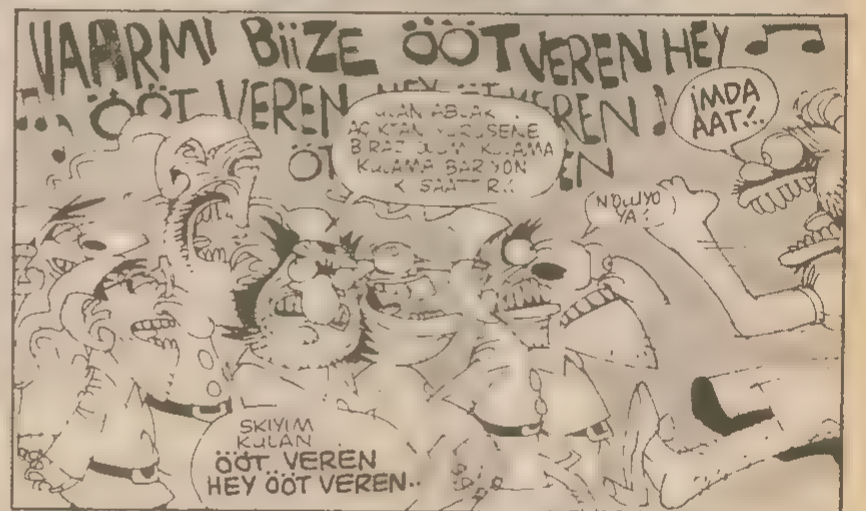 VAARMI BiiZE ÖÖT VEREN HEY
ÖÖT VEREN HEY VEREN
İMDA
AAT!..
ULAN ABLAK
AÇIKTAN YÜRÜSENE
BİRAZ KULAMA
KULAMA BAR YON
SAATTIR..
N'OLUYO
YA!
SKIYIM
KULAN
ÖÖT VEREN
HEY ÖÖT VEREN..